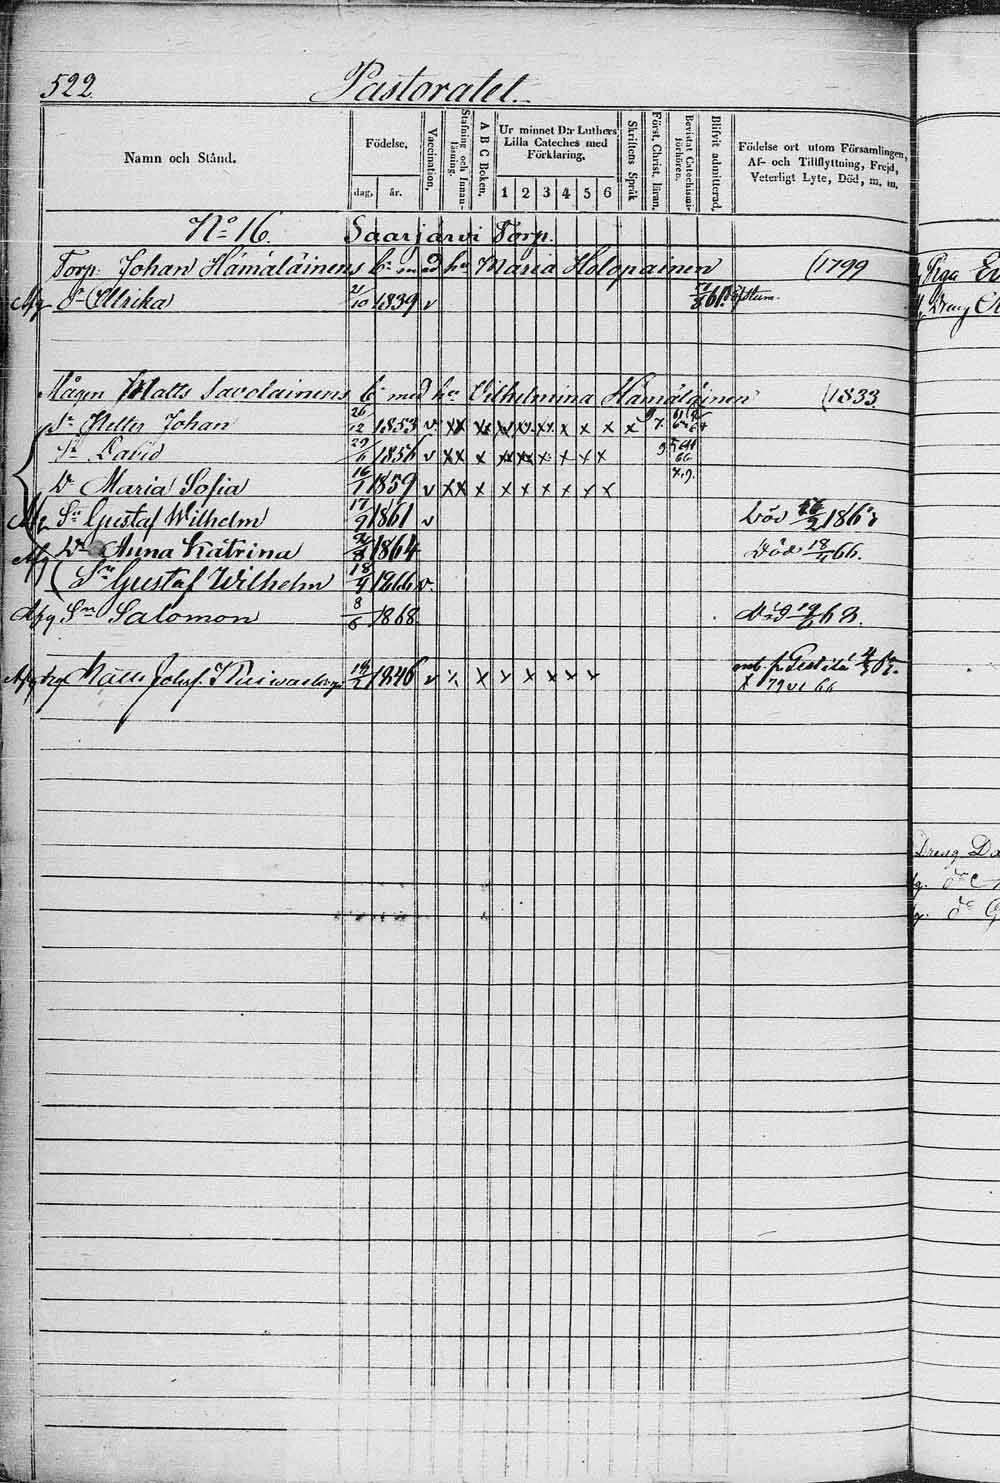 522.
Pastoratet.
Namn och Stånd.
Födelse,
dag, år.
Vaccination.
Stafning och Innanläsning.
A B C Boken.
Ur minnet D:r Luthers Lilla Cateches med Förklaring.
1 2 3 4 5 6
Skriftens Språk
Först. Christ. läran.
Bevistat Catechismiförhören.
Blifvit admitterad.
Födelse ort utom Församlingen, Af- och Tillflyttning, Frejd, Veterligt Lyte, Död, m. m.
No 16. Saarjärvi Torp.
Torp. Johan Hämäläinens bn med hu Maria Holopainen (1799
Afg Dr Ullrika 21/10 1839 v
Mågen Matts Savolainens bn med hu Vilhelmina Hämäläinen (1833
Sn Petter Johan 26/12 1853 v xx x x x x x x x x
Sn David 29/6 1856 v xx x x x x x x x
Dr Maria Sofia 16/1 1859 v xx x x x x x x x
Afg Sn Gustaf Wilhelm 17/9 1861 v Död 1863
Afg Dr Anna Katrina 1864 Död 18/4 66.
Sn Gustaf Wilhelm 18/4 1866 v.
Afg Sn Salomon 8/6 1868
Afg Matts Johsf. 1846 v x x x x x x x
Dreng